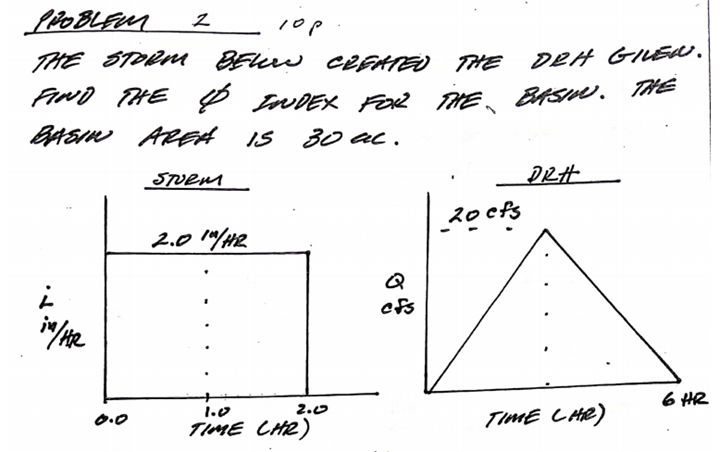 PROBLEM 2 10p
THE STORM BELOW CREATED THE DRH GIVEN.
FIND THE φ INDEX FOR THE BASIN. THE
BASIN AREA IS 30 ac.
STORM
DRH
20 cfs
2.0 in/HR
i
in/HR
Q
cfs
0.0 1.0 2.0
TIME (HR)
6 HR
TIME (HR)